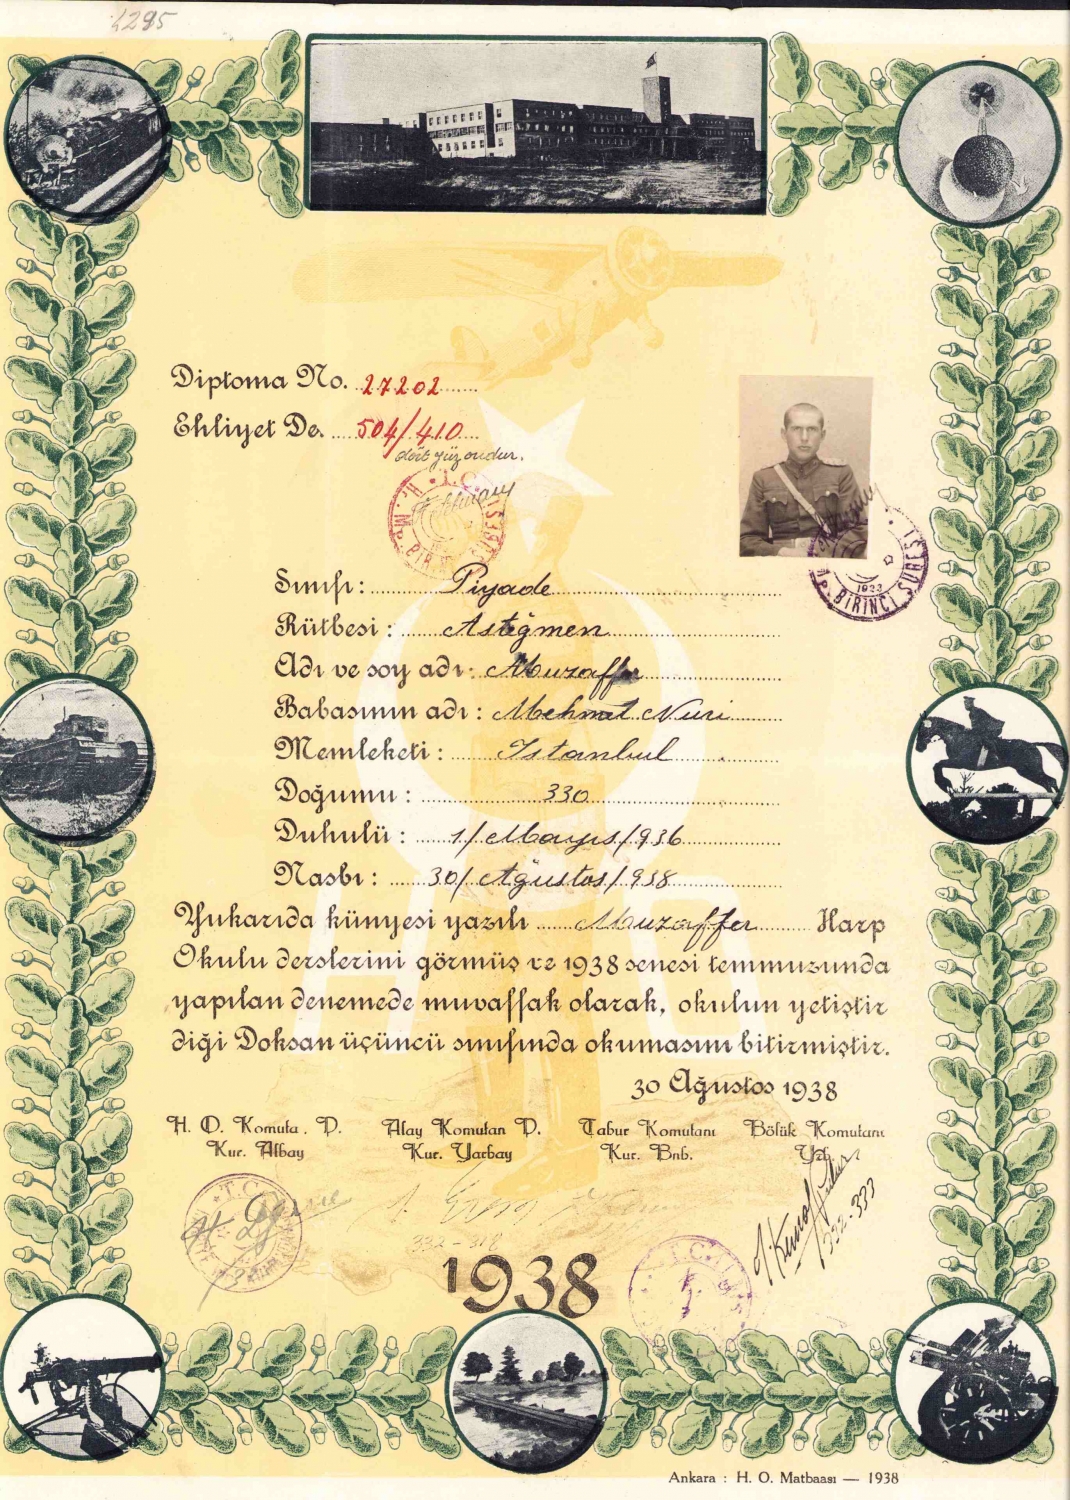 4295
Diploma No. 27202
Ehliyet De. 504/410
dört yüz ondur.
T.C.
BİRİNCİ ŞUBESİ
1933
Sınıfı: Piyade
Rütbesi: Asteğmen
Adı ve soy adı: Muzaffer
Babasının adı: Mehmet Nuri
Memleketi: Istanbul
Doğumu: 330
Duhulü: 1/Mayıs/936
Nasbı: 30/Ağustos/938
Yukarıda künyesi yazılı Muzaffer Harp
Okulu derslerini görmüş ve 1938 senesi temmuzunda
yapılan denemede muvaffak olarak, okulun yetiştir
diği Doksan üçüncü sınıfında okumasını bitirmiştir.
30 Ağustos 1938
H. O. Komuta. D. Alay Komutan D. Tabur Komutanı Bölük Komutanı
Kur. Albay Kur. Yarbay Kur. Bnb. Yzb.
T.C.
332-318
332-333
T.C.
1938
Ankara : H. O. Matbaası — 1938